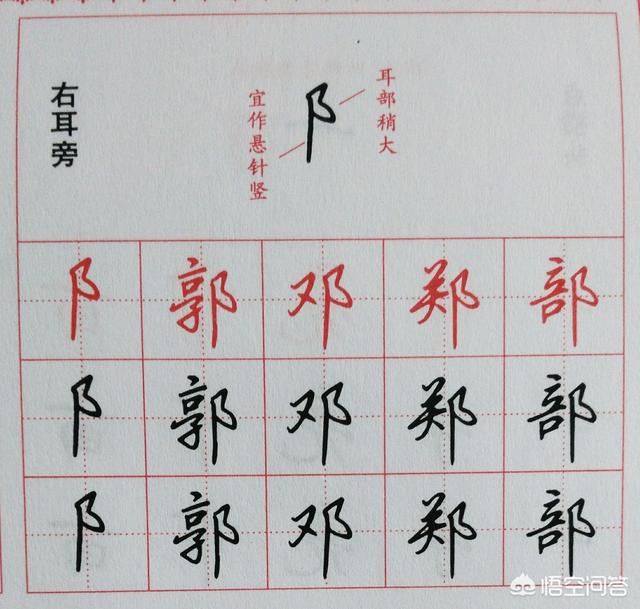 右耳旁
宜作悬针竖
阝
耳部稍大
阝 郭 邓 郑 部
阝 郭 邓 郑 部
阝 郭 邓 郑 部
悟空问答